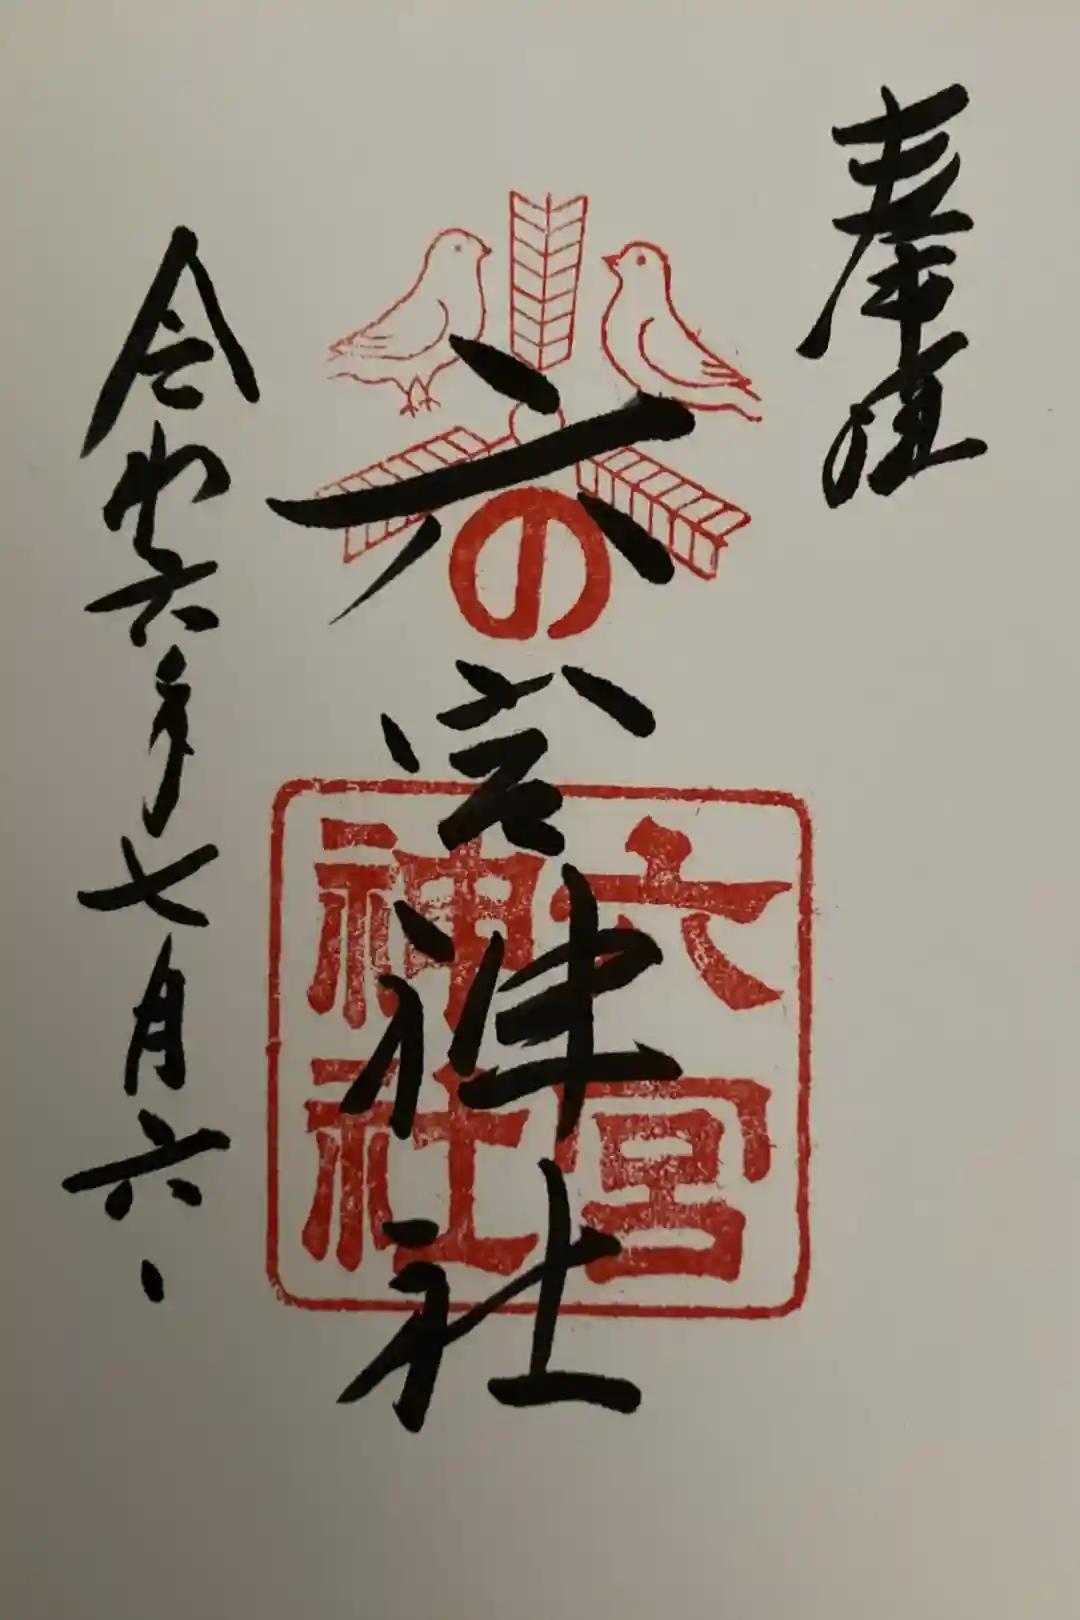 奉拝
六の宮神社
六宮
神社
令和六年七月六日